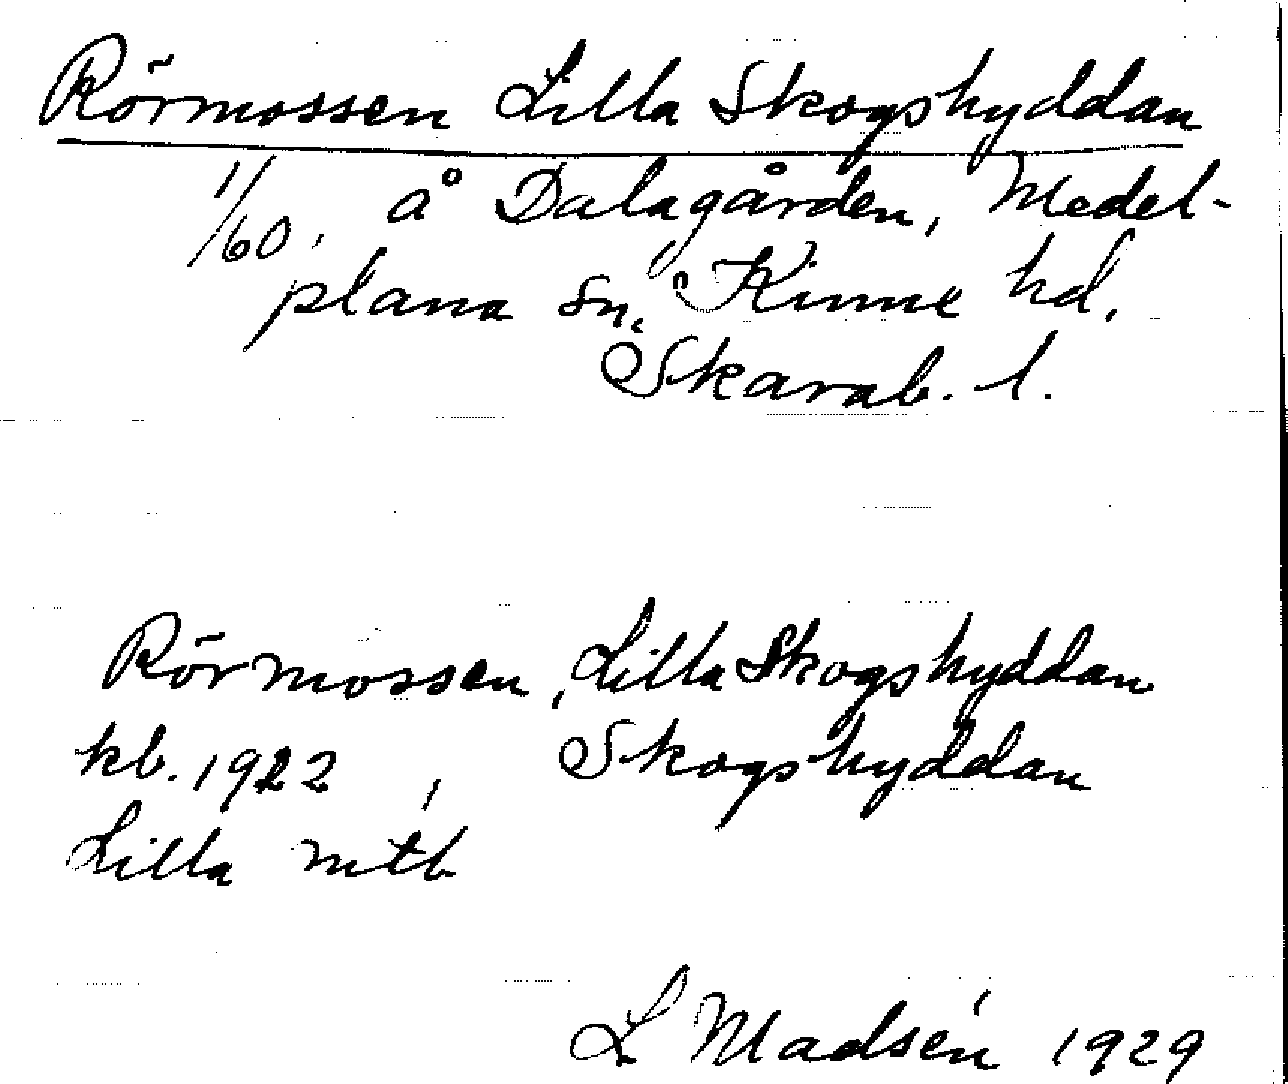 Rörmossen Lilla Skogshyddan
1/60, å Dalagården, Medel-
plana sn, Kinne hd,
Skarab. l.
Rörmossen, Lilla Skogshyddan
kb. 1922, Skogshyddan
Lilla mtb
L Madsén 1929